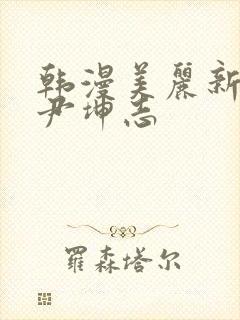 韩漫美麗新
尹坤志
羅森塔尔